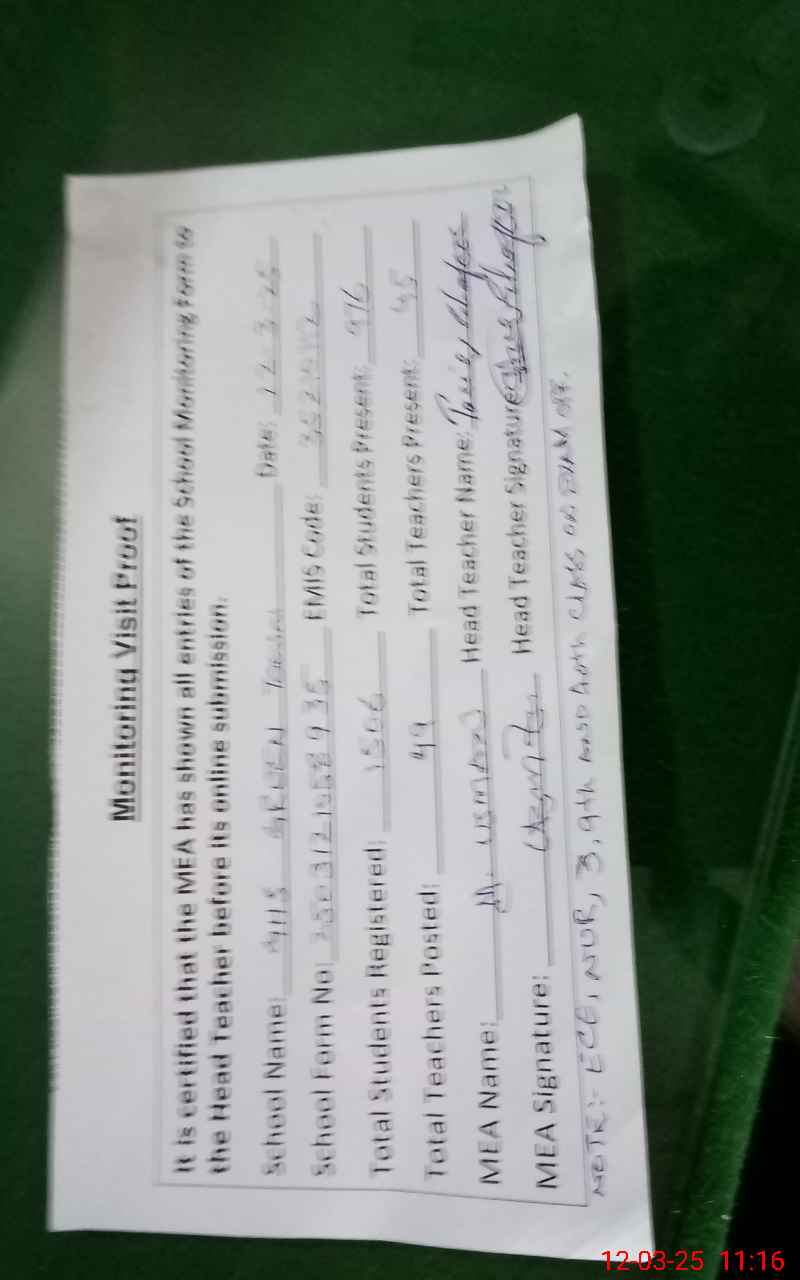 Monitoring Visit Proof
It is certified that the MEA has shown all entries of the School Monitoring Form to
the Head Teacher before its online submission.
School Name: GHS GREEN Town Date: 12-3-25
School Form No: EMIS Code:
Total Students Registered: 1506 Total Students Present: 976
Total Teachers Posted: 49 Total Teachers Present: 45
MEA Name: M. USMAN Head Teacher Name:
MEA Signature: Head Teacher Signature:
NOTE:- ECE, NUR, 3, 9th AND 10th CLASS ON EXAM OFF.
12-03-25 11:16